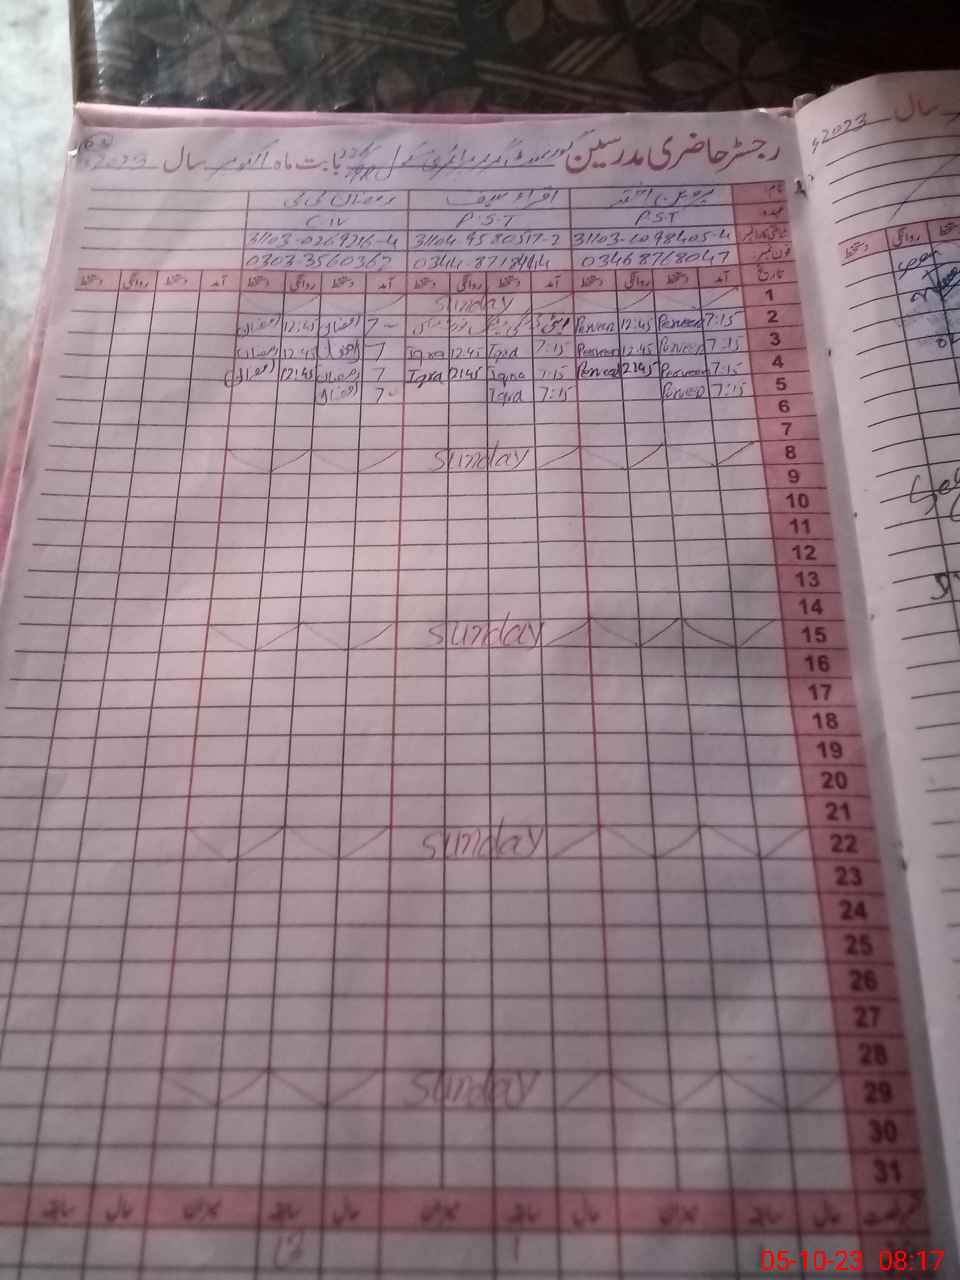 رجسٹر حاضری مدرسین گورنمنٹ گرلز پرائمری سکول بابت ماہ اکتوبر سال 2023
سال 2023
نام پروین اختر اقراء سیف رمضان بی بی
عہدہ P.S.T P.S.T C-IV
شناختی کارڈ نمبر 31103-6098405-4 31104-9580517-2 31103-0269216-4
فون نمبر 03468768047 0344-8718444 0303-3560367
تاریخ آمد دستخط روانگی دستخط آمد دستخط روانگی دستخط آمد دستخط روانگی دستخط آمد دستخط روانگی دستخط
1 Sunday
2 7:15 Perveen 12:45 Perveen 7 - رمضان 12:45 رمضان
3 7:15 Perveen 12:45 Perveen 7:15 Iqra 12:45 Iqra 7 رمضان 12:45 رمضان
4 7:15 Perveen 12:45 Perveen 7:15 Iqra 12:45 Iqra 7 رمضان 12:45 رمضان
5 7:15 Perveen 7:15 Iqra 7 - رمضان
6
7
8 Sunday
9
10
11
12
13
14
15 Sunday
16
17
18
19
20
21
22 Sunday
23
24
25
26
27
28
29 Sunday
30
31
حال سابقہ میزان حال سابقہ میزان حال سابقہ میزان حال سابقہ
05-10-23 08:17